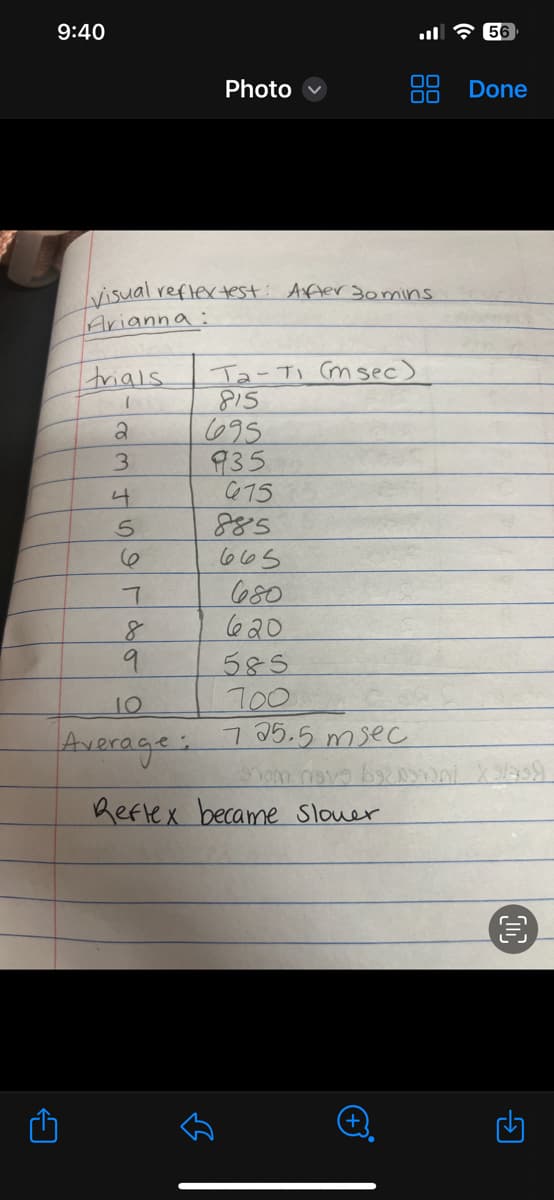 9:40
56
Photo
Done
Visual reflex test: After 30 mins
Arianna:
trials T2-T1 (msec)
1 815
2 695
3 935
4 675
5 885
6 665
7 680
8 620
9 585
10 700
Average: 725.5 msec
Reflex became slower